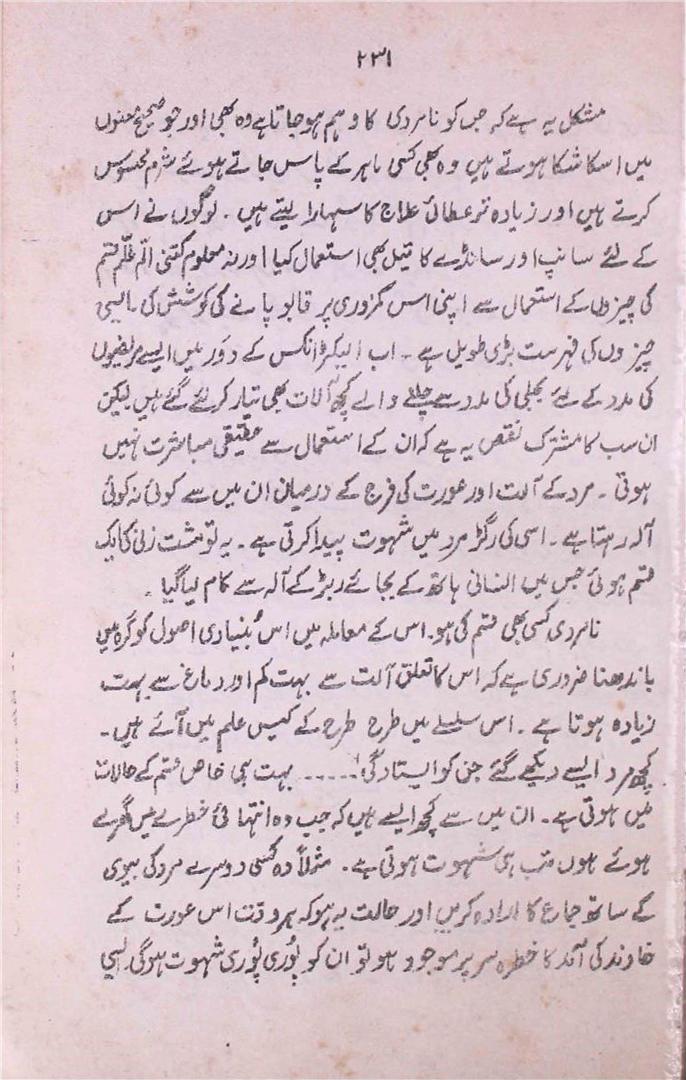 ۲۳۱
مشکل یہ ہے کہ جس کو نامردی کا وہم ہو جاتا ہے وہ بھی اور جو صحیح معنوں
میں اسکا شکار ہوتے ہیں وہ بھی کسی ماہر کے پاس جاتے ہوئے شرم محسوس
کرتے ہیں اور زیادہ تر عطائی علاج کا سہارا لیتے ہیں ۔ لوگوں نے اس
کے لئے سانپ اور سانڈے کا تیل بھی استعمال کیا اور نہ معلوم کتنی الّم غلّم قسم
کی چیزوں کے استعمال سے اپنی اس کمزوری پر قابو پانے کی کوشش کی ۔ ایسی
چیزوں کی فہرست بڑی طویل ہے ۔ اب الیکٹرانکس کے دَور میں ایسے مریضوں
کی مدد کے لئے بجلی کی مدد سے چلنے والے کچھ آلات بھی تیار کر لئے گئے ہیں لیکن
ان سب کا مشترک نقص یہ ہے کہ ان کے استعمال سے حقیقی مباشرت نہیں
ہوتی ۔ مرد کے آلت اور عورت کی فرج کے درمیان ان میں سے کوئی نہ کوئی
آلہ رہتا ہے ۔ اسی کی رگڑ مرد میں شہوت پیدا کرتی ہے ۔ یہ تو مشت زنی کی ایک
قسم ہوئی جس میں انسانی ہاتھ کے بجائے ربڑ کے آلہ سے کام لیا گیا ۔
نامردی کسی بھی قسم کی ہو ۔ اس کے معاملہ میں اس بُنیادی اصول کو گرہ میں
باندھنا ضروری ہے کہ اس کا تعلق آلت سے بہت کم اور دماغ سے بہت
زیادہ ہوتا ہے ۔ اس سلسلے میں طرح طرح کے کیس علم میں آئے ہیں ۔
کچھ مرد ایسے دیکھے گئے جن کو ایستادگی ۔۔۔۔۔ بہت ہی خاص قسم کے حالات
میں ہوتی ہے ۔ ان میں سے کچھ ایسے ہیں کہ جب وہ انتہائی خطرے میں گھرے
ہوئے ہوں تب ہی شہوت ہوتی ہے ۔ مثلاً وہ کسی دوسرے مرد کی بیوی
کے ساتھ جماع کا ارادہ کریں اور حالت یہ ہو کہ ہر وقت اس عورت کے
خاوند کی آمد کا خطرہ سر پر موجود ہو تو ان کو پُوری پُوری شہوت ہوگی